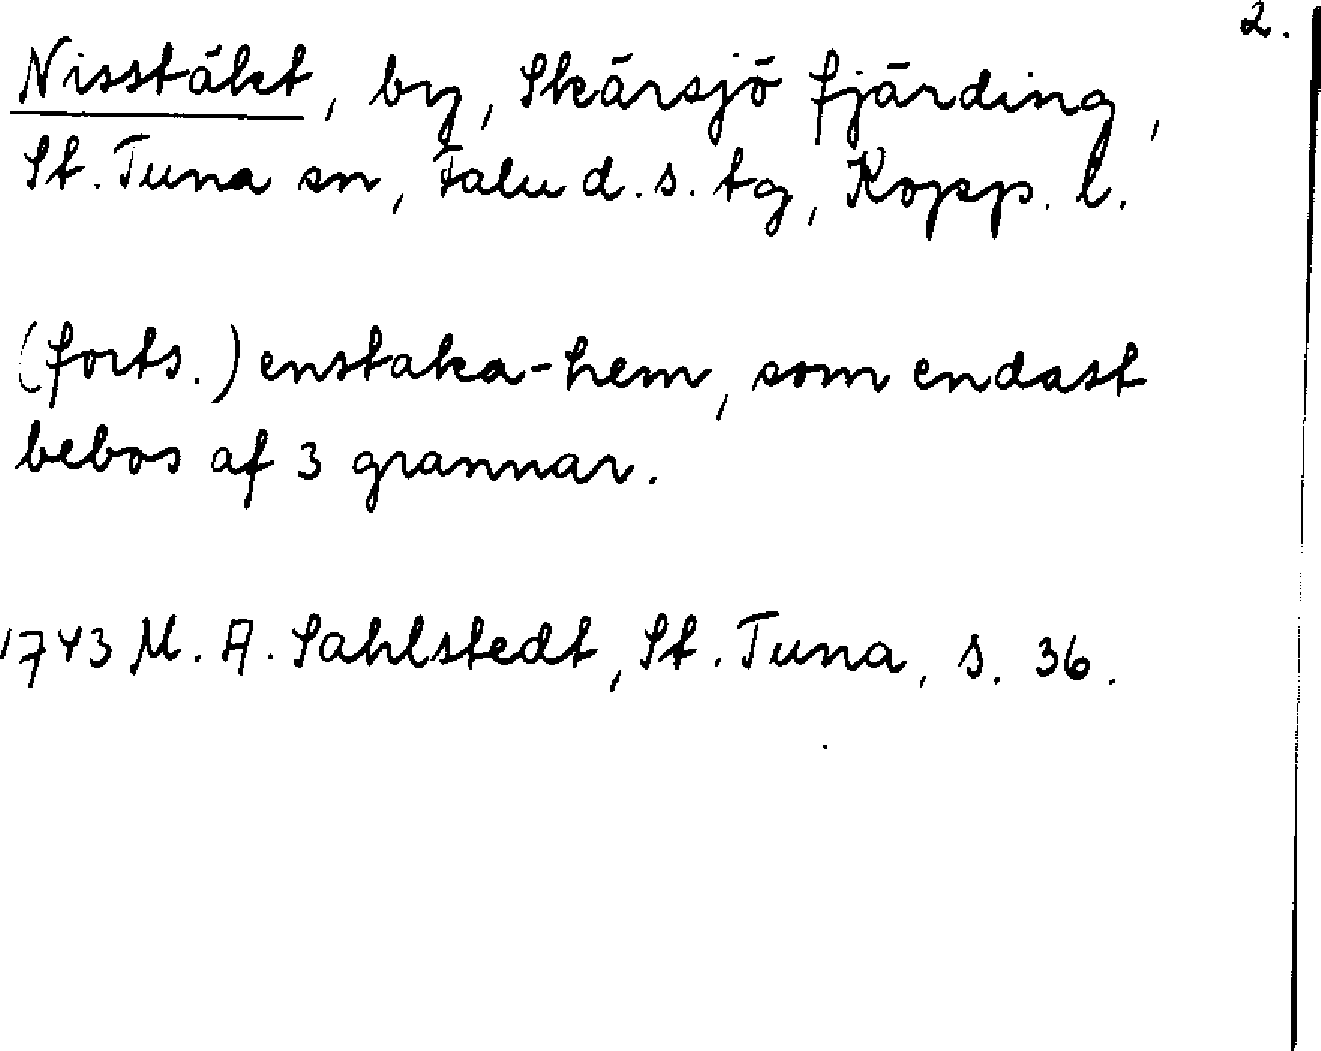 2.
Nisstäkt, by, Skärsjö fjärding,
St. Tuna sn, Falu d. s. tg, Kopp. l.
(forts.) enstaka-hem, som endast
bebos af 3 grannar.
1743 M. A. Sahlstedt, St. Tuna, s. 36.